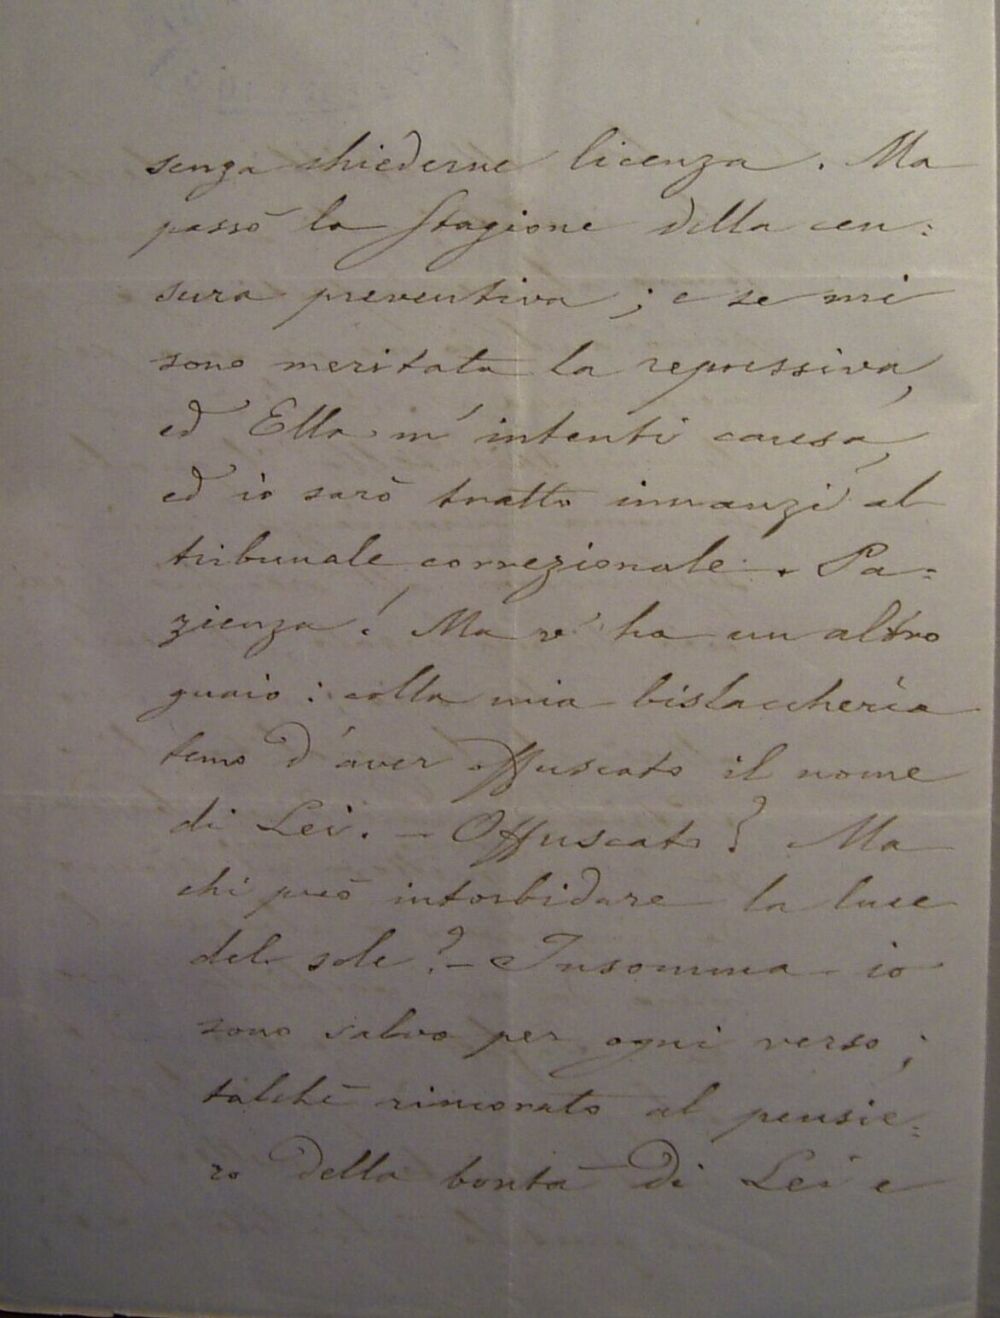 senza chiederne licenza. Ma
passò la stagione della cen:
sura preventiva; e se mi
sono meritata la repressiva,
ed Ella m'intenti causa,
ed io sarò tratto innanzi al
tribunale correzionale. Pa:
zienza! Ma v'ha un altro
guaio: colla mia bislaccheria
temo d'aver offuscato il nome
di Lei. — Offuscato? Ma
chi può intorbidare la luce
del sole? — Insomma io
sono salvo per ogni verso;
talchè rincorato al pensie:
ro della bontà di Lei e